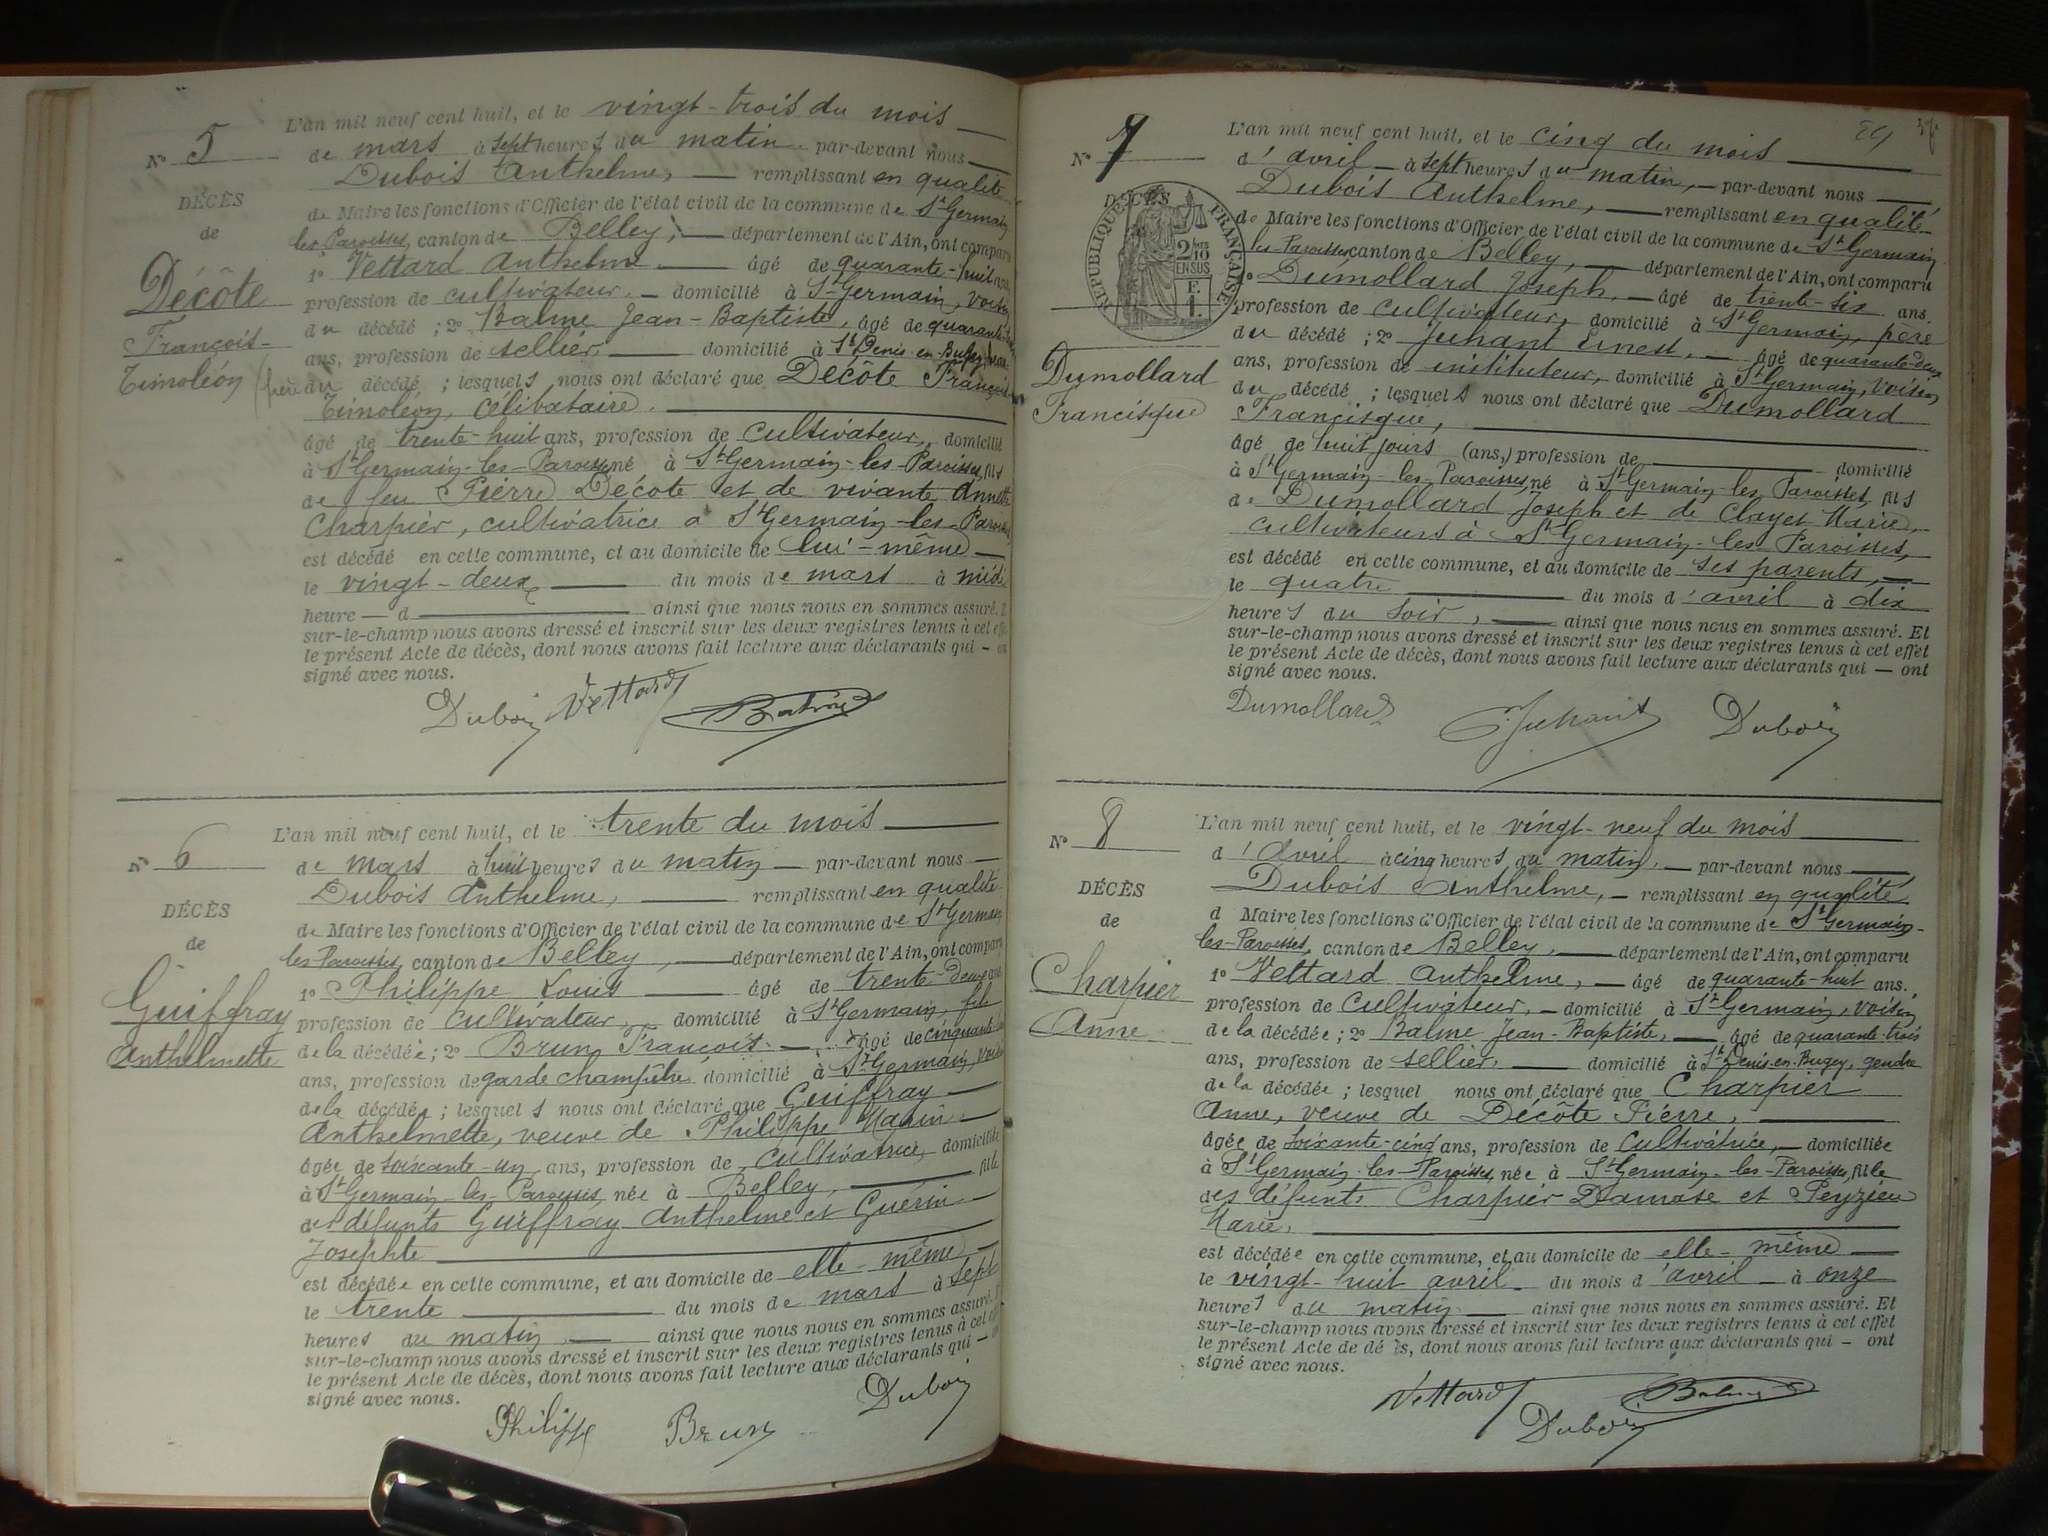 L'an mil neuf cent huit, et le vingt-trois du mois
N° 5
de mars à sept heures du matin par-devant nous
Dubois Anthelme, remplissant en qualité
DÉCÈS
de Maire les fonctions d'Officier de l'état civil de la commune de St Germain
de
les Paroisses, canton de Belley, département de l'Ain, ont comparu
1° Vettard Anthelme âgé de quarante-huit ans,
Décôte
profession de cultivateur, domicilié à St Germain, voisin
du décédé ; 2° Balme Jean-Baptiste, âgé de quarante
François-
ans, profession de sellier, domicilié à St Denis-en-Bugey,
Timoléon
frère du décédé ; lesquels nous ont déclaré que Décôte François
Timoléon, célibataire.
âgé de trente-huit ans, profession de cultivateur, domicilié
à St Germain-les-Paroisses, né à St Germain-les-Paroisses, fils
de feu Pierre Décôte et de vivante Annette
Charpier, cultivatrice à St Germain-les-Paroisses,
est décédé en cette commune, et au domicile de lui-même
le vingt-deux du mois de mars à midi
heure d ainsi que nous nous en sommes assuré. Et
sur-le-champ nous avons dressé et inscrit sur les deux registres tenus à cet effet
le présent Acte de décès, dont nous avons fait lecture aux déclarants qui — ont
signé avec nous.
Dubois Vettard Balme
L'an mil neuf cent huit, et le trente du mois
N° 6
de mars à huit heures du matin par-devant nous
Dubois Anthelme, remplissant en qualité
DÉCÈS
de Maire les fonctions d'Officier de l'état civil de la commune de St Germain
de
les Paroisses, canton de Belley, département de l'Ain, ont comparu
1° Philippe Louis âgé de trente-deux ans
Guiffray
profession de cultivateur, domicilié à St Germain, fils
Anthelmette
de la décédée ; 2° Brun François, âgé de cinquante
ans, profession de garde champêtre domicilié à St Germain, voisin
de la décédée ; lesquels nous ont déclaré que Guiffray
Anthelmette, veuve de Philippe Marin
âgée de soixante-un ans, profession de cultivatrice, domiciliée
à St Germain-les-Paroisses, née à Belley, fille
des défunts Guiffray Anthelme et Guérin
Josephte
est décédée en cette commune, et au domicile de elle-même
le trente du mois de mars à sept
heures du matin, ainsi que nous nous en sommes assuré. Et
sur-le-champ nous avons dressé et inscrit sur les deux registres tenus à cet effet
le présent Acte de décès, dont nous avons fait lecture aux déclarants qui — ont
signé avec nous.
Philippe Brun Dubois
L'an mil neuf cent huit, et le cinq du mois
N° 7
d'avril à sept heures du matin, par-devant nous
Dubois Anthelme, remplissant en qualité
DÉCÈS
RÉPUBLIQUE FRANÇAISE
2/10 EN SUS
F. 1.
de Maire les fonctions d'Officier de l'état civil de la commune de St Germain
les-Paroisses canton de Belley, département de l'Ain, ont comparu
1° Dumollard Joseph, âgé de trente-six ans,
profession de cultivateur, domicilié à St Germain, père
du décédé ; 2° Juhant Ernest, âgé de quarante-deux
Dumollard
ans, profession de instituteur, domicilié à St Germain, voisin
Francisque
du décédé ; lesquels nous ont déclaré que Dumollard
Francisque,
âgé de huit jours (ans,) profession de domicilié
à St Germain-les-Paroisses, né à St Germain-les-Paroisses, fils
de Dumollard Joseph et de Clayet Marie,
cultivateurs à St Germain-les-Paroisses,
est décédé en cette commune, et au domicile de ses parents,
le quatre du mois d'avril à dix
heures du soir, ainsi que nous nous en sommes assuré. Et
sur-le-champ nous avons dressé et inscrit sur les deux registres tenus à cet effet
le présent Acte de décès, dont nous avons fait lecture aux déclarants qui — ont
signé avec nous.
Dumollard Juhant Dubois
L'an mil neuf cent huit, et le vingt-neuf du mois
N° 8
d'avril à cinq heures du matin, par-devant nous
Dubois Anthelme, remplissant en qualité
DÉCÈS
d Maire les fonctions d'Officier de l'état civil de la commune de St Germain-
de
les-Paroisses, canton de Belley, département de l'Ain, ont comparu
Charpier
1° Vettard Anthelme, âgé de quarante-huit ans,
profession de cultivateur, domicilié à St Germain, voisin
Anne
de la décédée ; 2° Balme Jean-Baptiste, âgé de quarante-trois
ans, profession de sellier, domicilié à St Denis-en-Bugey, gendre
de la décédée ; lesquel nous ont déclaré que Charpier
Anne, veuve de Décôte Pierre,
âgée de soixante-cinq ans, profession de cultivatrice, domiciliée
à St Germain-les-Paroisses, née à St Germain-les-Paroisses, fille
des défunts Charpier Damase et Peyzieu
Marie,
est décédée en cette commune, et au domicile de elle-même
le vingt-huit avril du mois d'avril à onze
heures du matin ainsi que nous nous en sommes assuré. Et
sur-le-champ nous avons dressé et inscrit sur les deux registres tenus à cet effet
le présent Acte de décès, dont nous avons fait lecture aux déclarants qui — ont
signé avec nous.
Vettard Balme
Dubois